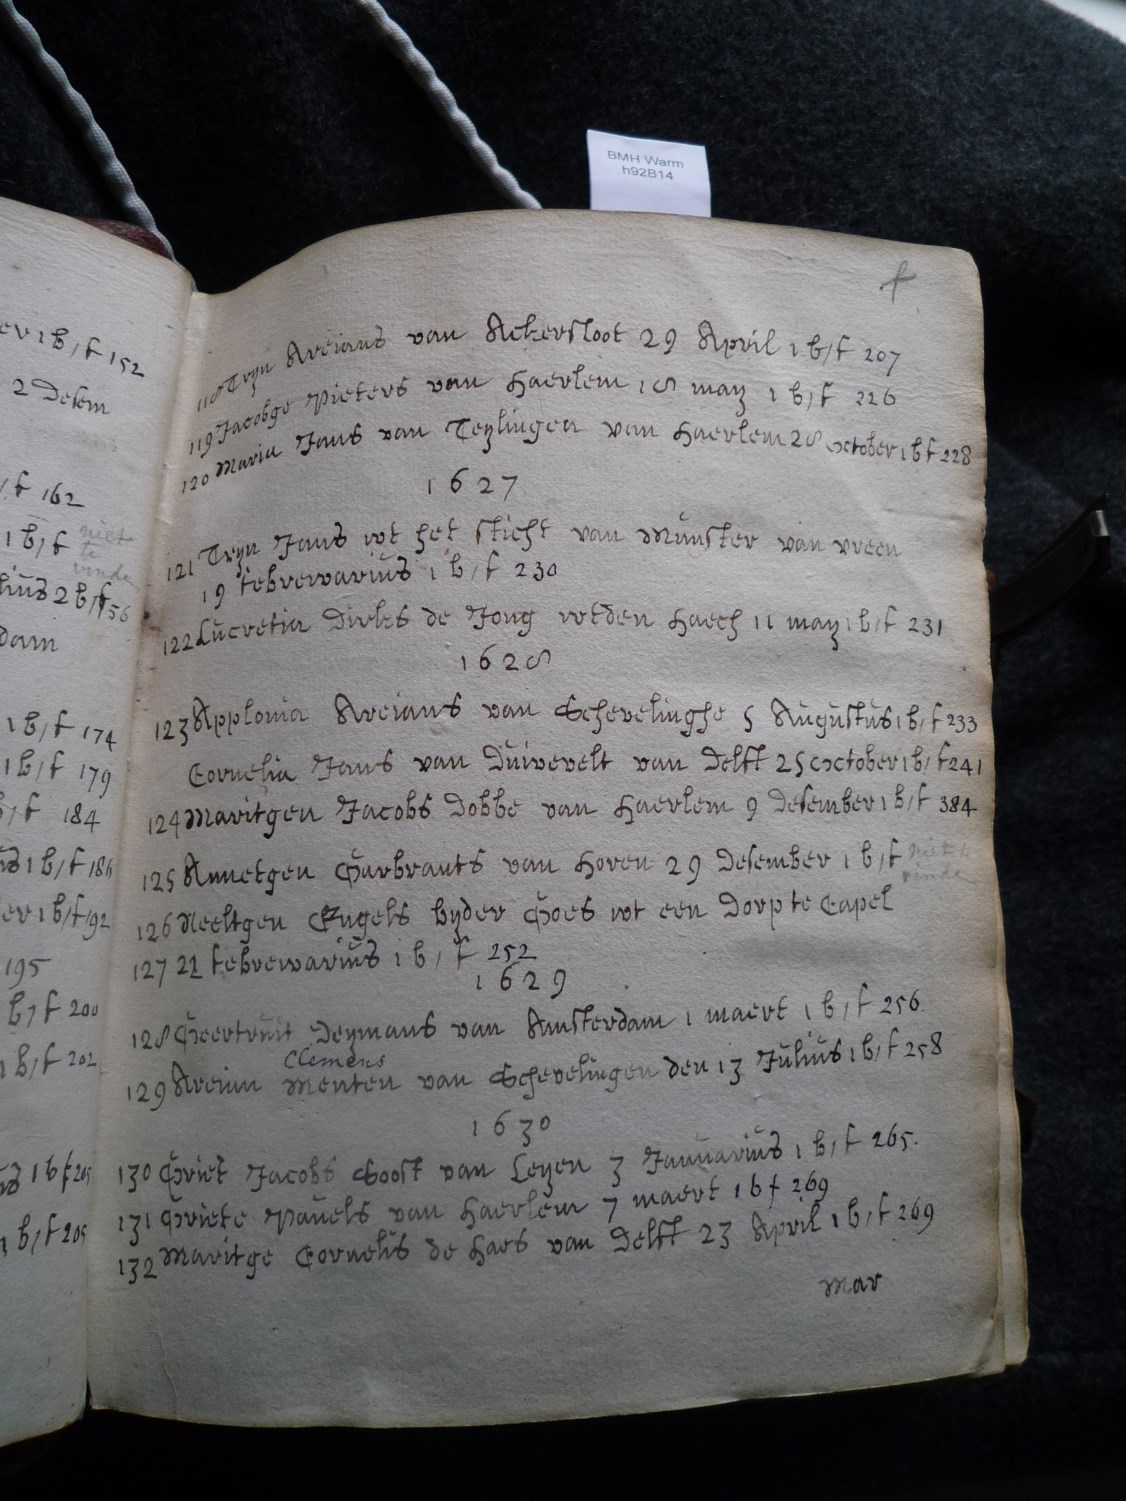 BMH Warm
h92B14
er 1 b/f 152
2 Desem
f 162
1 b/f niet
te
vinde
lius 2 b/f 156
dam
1 b/f 174
1 b/f 179
b/f 184
1 b/f 186
er 1 b/f 192
195
b/f 200
1 b/f 202
1 b f 205
b/f 205
f
118 Tryn Areians van Ackersloot 29 April 1 b/f 207
119 Jacobge Pieters van Haerlem 18 may 1 b/f 226
120 Maria Jans van Teylingen van Haerlem 28 october 1 b f 228
1627
121 Tryn Jans wt het sticht van Munster van vreen
19 febrewarius 1 b/f 230
122 Lucretia Dircks de Jong wt den Haech 11 may 1 b/f 231
1628
123 Applonia Areians van Schevelinghe 5 Augustus 1 b/f 233
Cornelia Jans van Duivevelt van Delft 25 october 1 b/f 241
124 Maritgen Jacobs Dobbe van Haerlem 9 desember 1 b/f 384
125 Annetgen Garbrants van Horen 29 desember 1 b/f niet te
vinde
126 Neeltgen Engels byder Goes wt een dorp te Capel
127 21 febrewarius 1 b/f 252
1629
128 Geertruit Deymans van Amsterdam 1 maert 1 b/f 256
Clemens
129 Areian Menten van Schevelingen den 13 Julius 1 b/f 258
1630
130 Griet Jacobs Soost van Leyen 3 Januarius 1 b/f 265.
131 Griete Pauels van Haerlem 7 maert 1 b f 269
132 Maritge Cornelis de Haes van Delft 23 April 1 b/f 269
mar